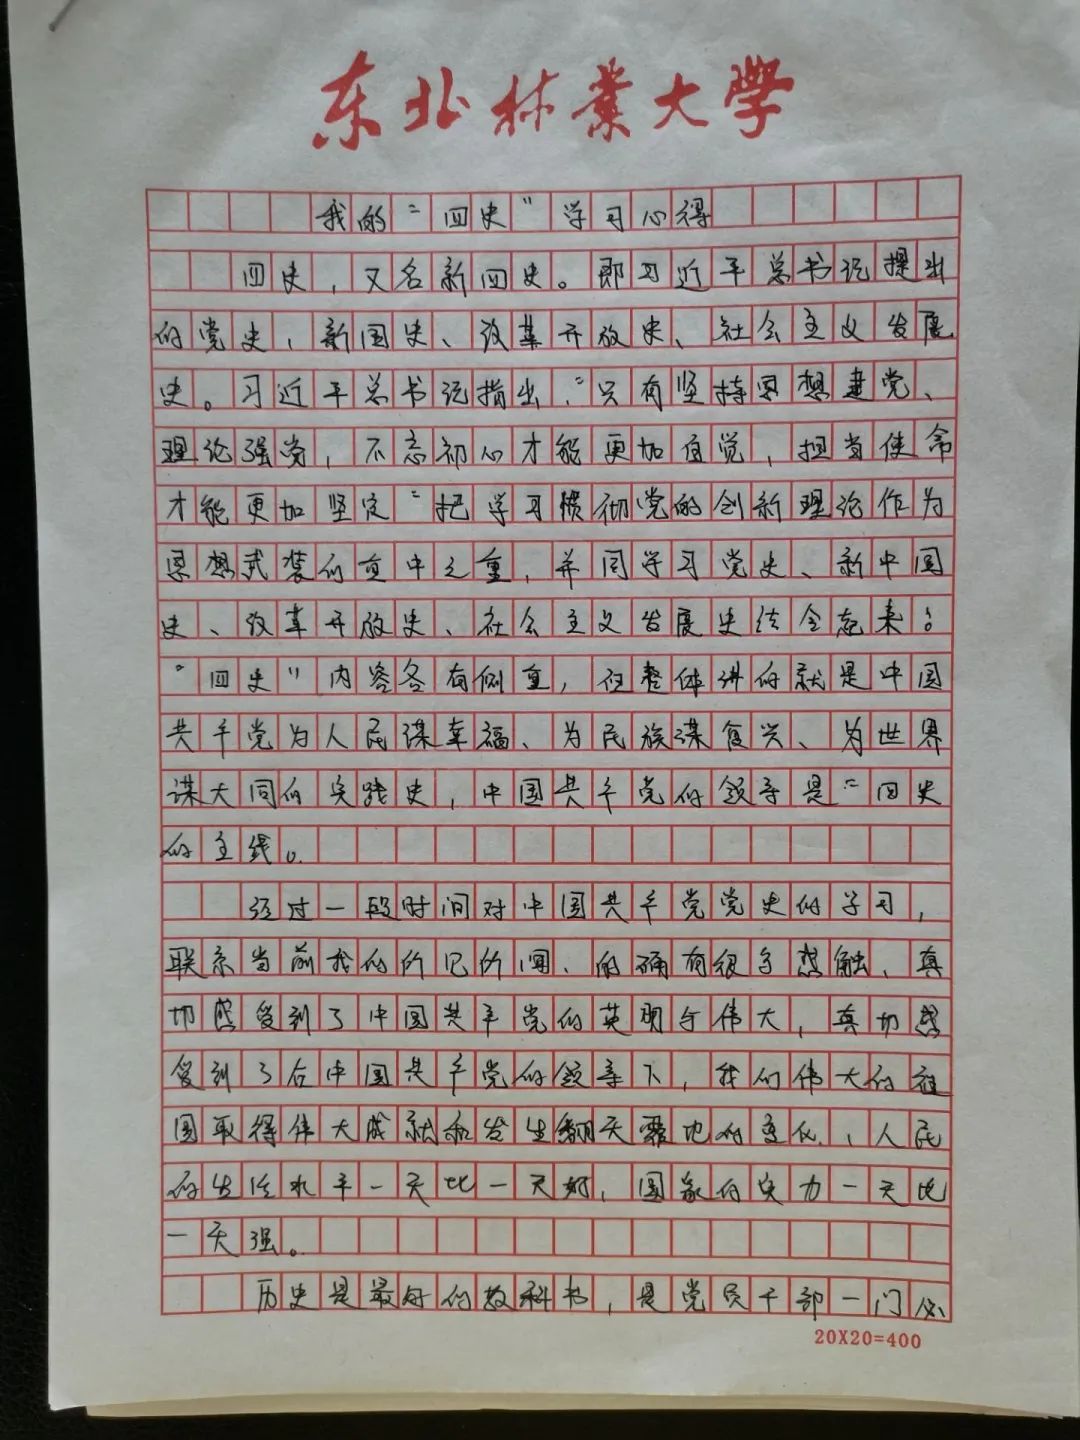 东北林业大学
我的“四史”学习心得
四史，又名新四史。即习近平总书记提出
的党史、新国史、改革开放史、社会主义发展
史。习近平总书记指出，“只有坚持思想建党、
理论强党，不忘初心才能更加自觉，担当使命
才能更加坚定”把学习惯彻党的创新理论作为
思想武装的重中之重，并同学习党史、新中国
史、改革开放史、社会主义发展史结合起来。
“四史”内容各有侧重，但整体讲的就是中国
共产党为人民谋幸福、为民族谋复兴、为世界
谋大同的实践史，中国共产党的领导是“四史
的主线。
经过一段时间对中国共产党党史的学习，
联系当前我的所见所闻、的确有很多感触、真
切感受到了中国共产党的英明与伟大，真切感
受到了在中国共产党的领导下，我们伟大的祖
国取得伟大成就和发生翻天覆地的变化、人民
的生活水平一天比一天好，国家的实力一天比
一天强。
历史是最好的教科书，是党员干部一门必
20X20=400